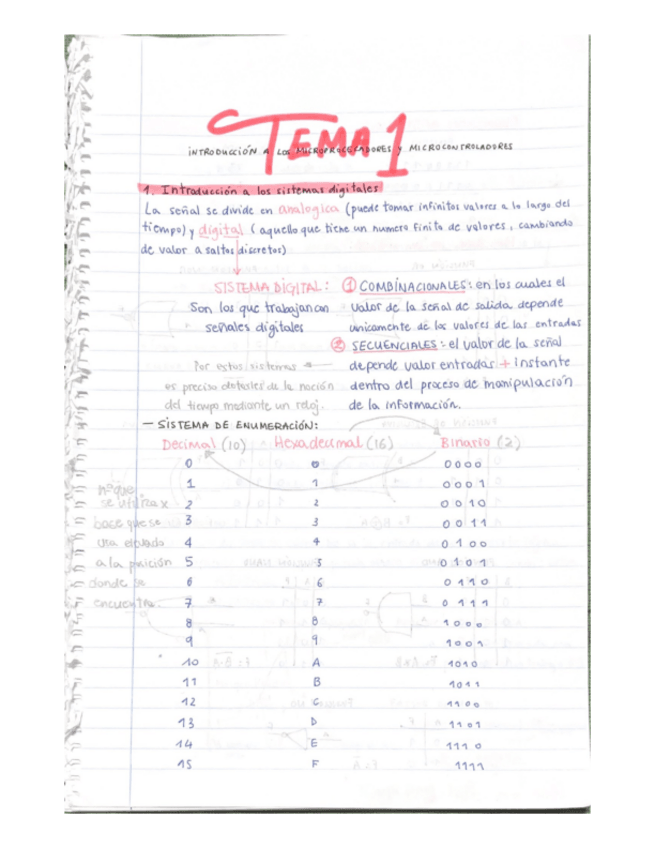 TEMA 1
INTRODUCCIÓN A LOS MICROPROCESADORES Y MICROCONTROLADORES
1. Introducción a los sistemas digitales
La señal se divide en analógica (puede tomar infinitos valores a lo largo del
tiempo) y digital (aquello que tiene un numero finito de valores, cambiando
de valor a saltos discretos)
SISTEMA DIGITAL:
Son los que trabajan con
señales digitales
① COMBINACIONALES: en los cuales el
valor de la señal de salida depende
unicamente de los valores de las entradas
② SECUENCIALES: el valor de la señal
depende valor entradas + instante
dentro del proceso de manipulación
de la información.
Por estos sistemas
es preciso dotarles de la noción
del tiempo mediante un reloj.
— SISTEMA DE ENUMERACIÓN:
Decimal (10) Hexadecimal (16) Binario (2)
0 0 0000
1 1 0001
2 2 0010
3 3 0011
4 4 0100
5 5 0101
6 6 0110
7 7 0111
8 8 1000
9 9 1001
10 A 1010
11 B 1011
12 C 1100
13 D 1101
14 E 1110
15 F 1111
nº que
se utiliza x
base que se
usa elevado
a la posición
donde se
encuentra.